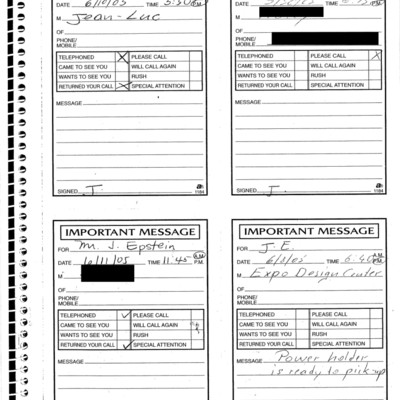 DATE 6/10/05 TIME 5:50 P.M.
M Jean-Luc
OF
PHONE/
MOBILE
TELEPHONED X PLEASE CALL
CAME TO SEE YOU WILL CALL AGAIN
WANTS TO SEE YOU RUSH
RETURNED YOUR CALL X SPECIAL ATTENTION
MESSAGE
SIGNED J.
1184
DATE TIME P.M.
M
OF
PHONE/
MOBILE
TELEPHONED PLEASE CALL X
CAME TO SEE YOU WILL CALL AGAIN
WANTS TO SEE YOU RUSH
RETURNED YOUR CALL SPECIAL ATTENTION
MESSAGE
SIGNED J.
1184
IMPORTANT MESSAGE
FOR Mr. J. Epstein
DATE 6/11/05 TIME 11:45 A.M. P.M.
M
OF
PHONE/
MOBILE
TELEPHONED ✓ PLEASE CALL
CAME TO SEE YOU WILL CALL AGAIN
WANTS TO SEE YOU RUSH
RETURNED YOUR CALL ✓ SPECIAL ATTENTION
MESSAGE
IMPORTANT MESSAGE
FOR J.E.
DATE TIME A.M. P.M.
M Expo Design Center
OF
PHONE/
MOBILE
TELEPHONED PLEASE CALL
CAME TO SEE YOU WILL CALL AGAIN
WANTS TO SEE YOU RUSH
RETURNED YOUR CALL SPECIAL ATTENTION
MESSAGE Power holder
is ready to pick-up